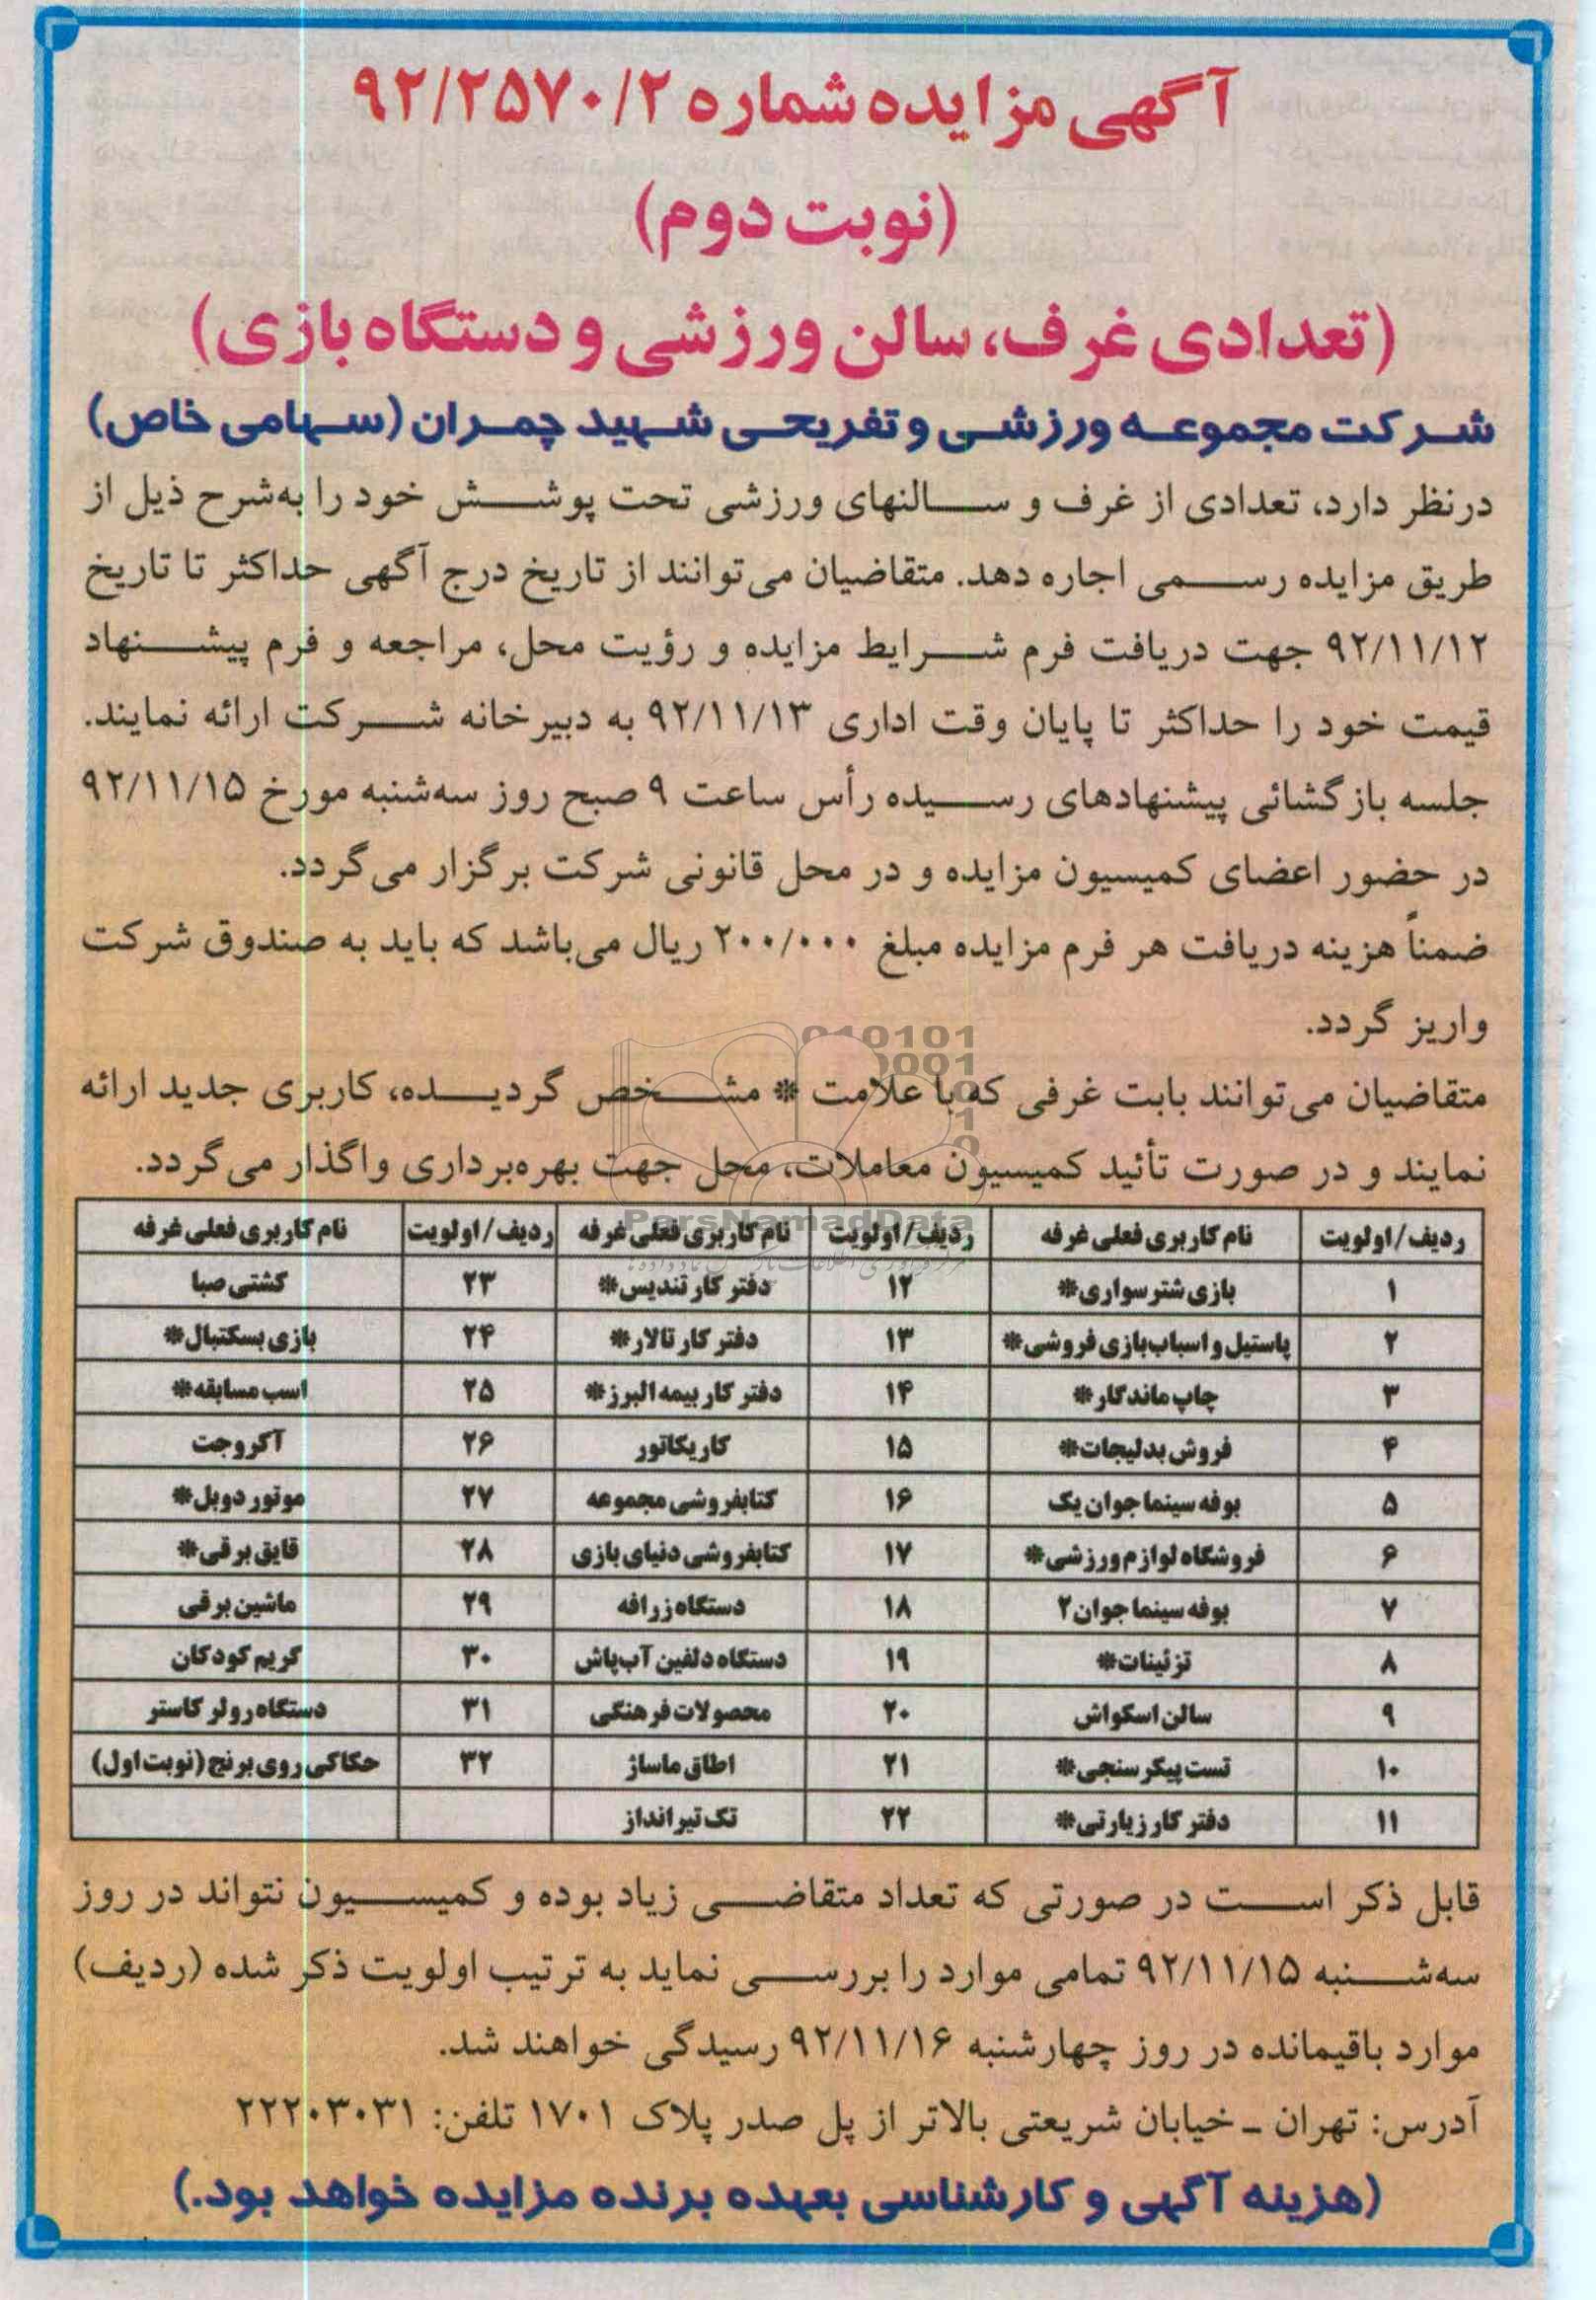 آگهی مزایده شماره ۹۲/۲۵۷۰/۲
(نوبت دوم)
(تعدادی غرف، سالن ورزشی و دستگاه بازی)
شرکت مجموعه ورزشی و تفریحی شهید چمران (سهامی خاص)
درنظر دارد، تعدادی از غرف و سالنهای ورزشی تحت پوشش خود را به‌شرح ذیل از
طریق مزایده رسمی اجاره دهد. متقاضیان می‌توانند از تاریخ درج آگهی حداکثر تا تاریخ
۹۲/۱۱/۱۲ جهت دریافت فرم شرایط مزایده و رؤیت محل، مراجعه و فرم پیشنهاد
قیمت خود را حداکثر تا پایان وقت اداری ۹۲/۱۱/۱۳ به دبیرخانه شرکت ارائه نمایند.
جلسه بازگشائی پیشنهادهای رسیده رأس ساعت ۹ صبح روز سه‌شنبه مورخ ۹۲/۱۱/۱۵
در حضور اعضای کمیسیون مزایده و در محل قانونی شرکت برگزار می‌گردد.
ضمناً هزینه دریافت هر فرم مزایده مبلغ ۲۰۰/۰۰۰ ریال می‌باشد که باید به صندوق شرکت
واریز گردد.
متقاضیان می‌توانند بابت غرفی که با علامت * مشخص گردیده، کاربری جدید ارائه
نمایند و در صورت تأئید کمیسیون معاملات، محل جهت بهره‌برداری واگذار می‌گردد.
ردیف/اولویت نام کاربری فعلی غرفه ردیف/اولویت نام کاربری فعلی غرفه ردیف/اولویت نام کاربری فعلی غرفه
۱ بازی شترسواری* ۱۲ دفتر کار تندیس* ۲۳ کشتی صبا
۲ پاستیل و اسباب‌بازی فروشی* ۱۳ دفتر کار تالار* ۲۴ بازی بسکتبال*
۳ چاپ ماندگار* ۱۴ دفتر کار بیمه البرز* ۲۵ اسب مسابقه*
۴ فروش بدلیجات* ۱۵ کاریکاتور ۲۶ آکروجت
۵ بوفه سینما جوان یک ۱۶ کتابفروشی مجموعه ۲۷ موتور دوبل*
۶ فروشگاه لوازم ورزشی* ۱۷ کتابفروشی دنیای بازی ۲۸ قایق برقی*
۷ بوفه سینما جوان ۲ ۱۸ دستگاه زرافه ۲۹ ماشین برقی
۸ تزئینات* ۱۹ دستگاه دلفین آب‌پاش ۳۰ کریم کودکان
۹ سالن اسکواش ۲۰ محصولات فرهنگی ۳۱ دستگاه رولر کاستر
۱۰ تست پیکرسنجی* ۲۱ اطاق ماساژ ۳۲ حکاکی روی برنج (نوبت اول)
۱۱ دفتر کار زیارتی* ۲۲ تک تیرانداز
قابل ذکر است در صورتی که تعداد متقاضی زیاد بوده و کمیسیون نتواند در روز
سه‌شنبه ۹۲/۱۱/۱۵ تمامی موارد را بررسی نماید به ترتیب اولویت ذکر شده (ردیف)
موارد باقیمانده در روز چهارشنبه ۹۲/۱۱/۱۶ رسیدگی خواهند شد.
آدرس: تهران ـ خیابان شریعتی بالاتر از پل صدر پلاک ۱۷۰۱ تلفن: ۲۲۲۰۳۰۳۱
(هزینه آگهی و کارشناسی بعهده برنده مزایده خواهد بود.)
ParsNamadData